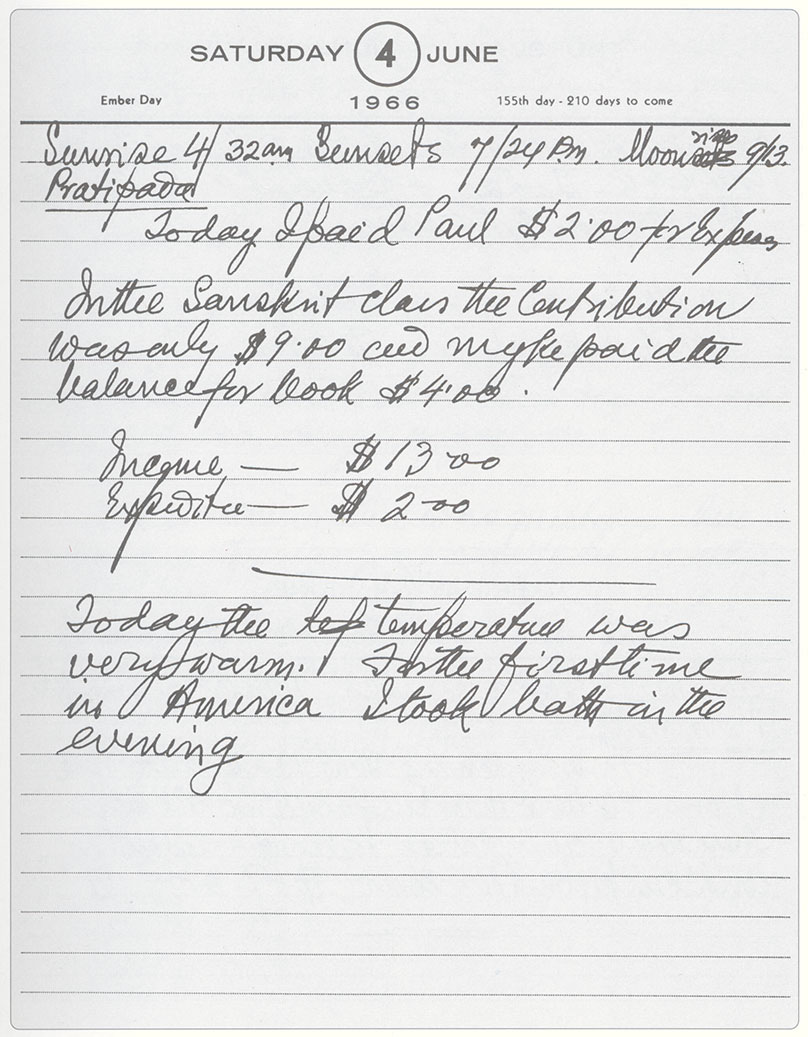 SATURDAY 4 JUNE
Ember Day 1966 155th day - 210 days to come
Sunrise 4/32am Sunsets 7/24 Pm. Moon rises 9/13.
Pratipada
Today I paid Paul $2.00 for Expenses
In the Sanskrit class the Contribution
was only $9.00 and myke paid the
balance for book $4.00.
Income — $13.00
Expenditure — $2.00
Today the temperature was
very warm. For the first time
in America I took bath in the
evening